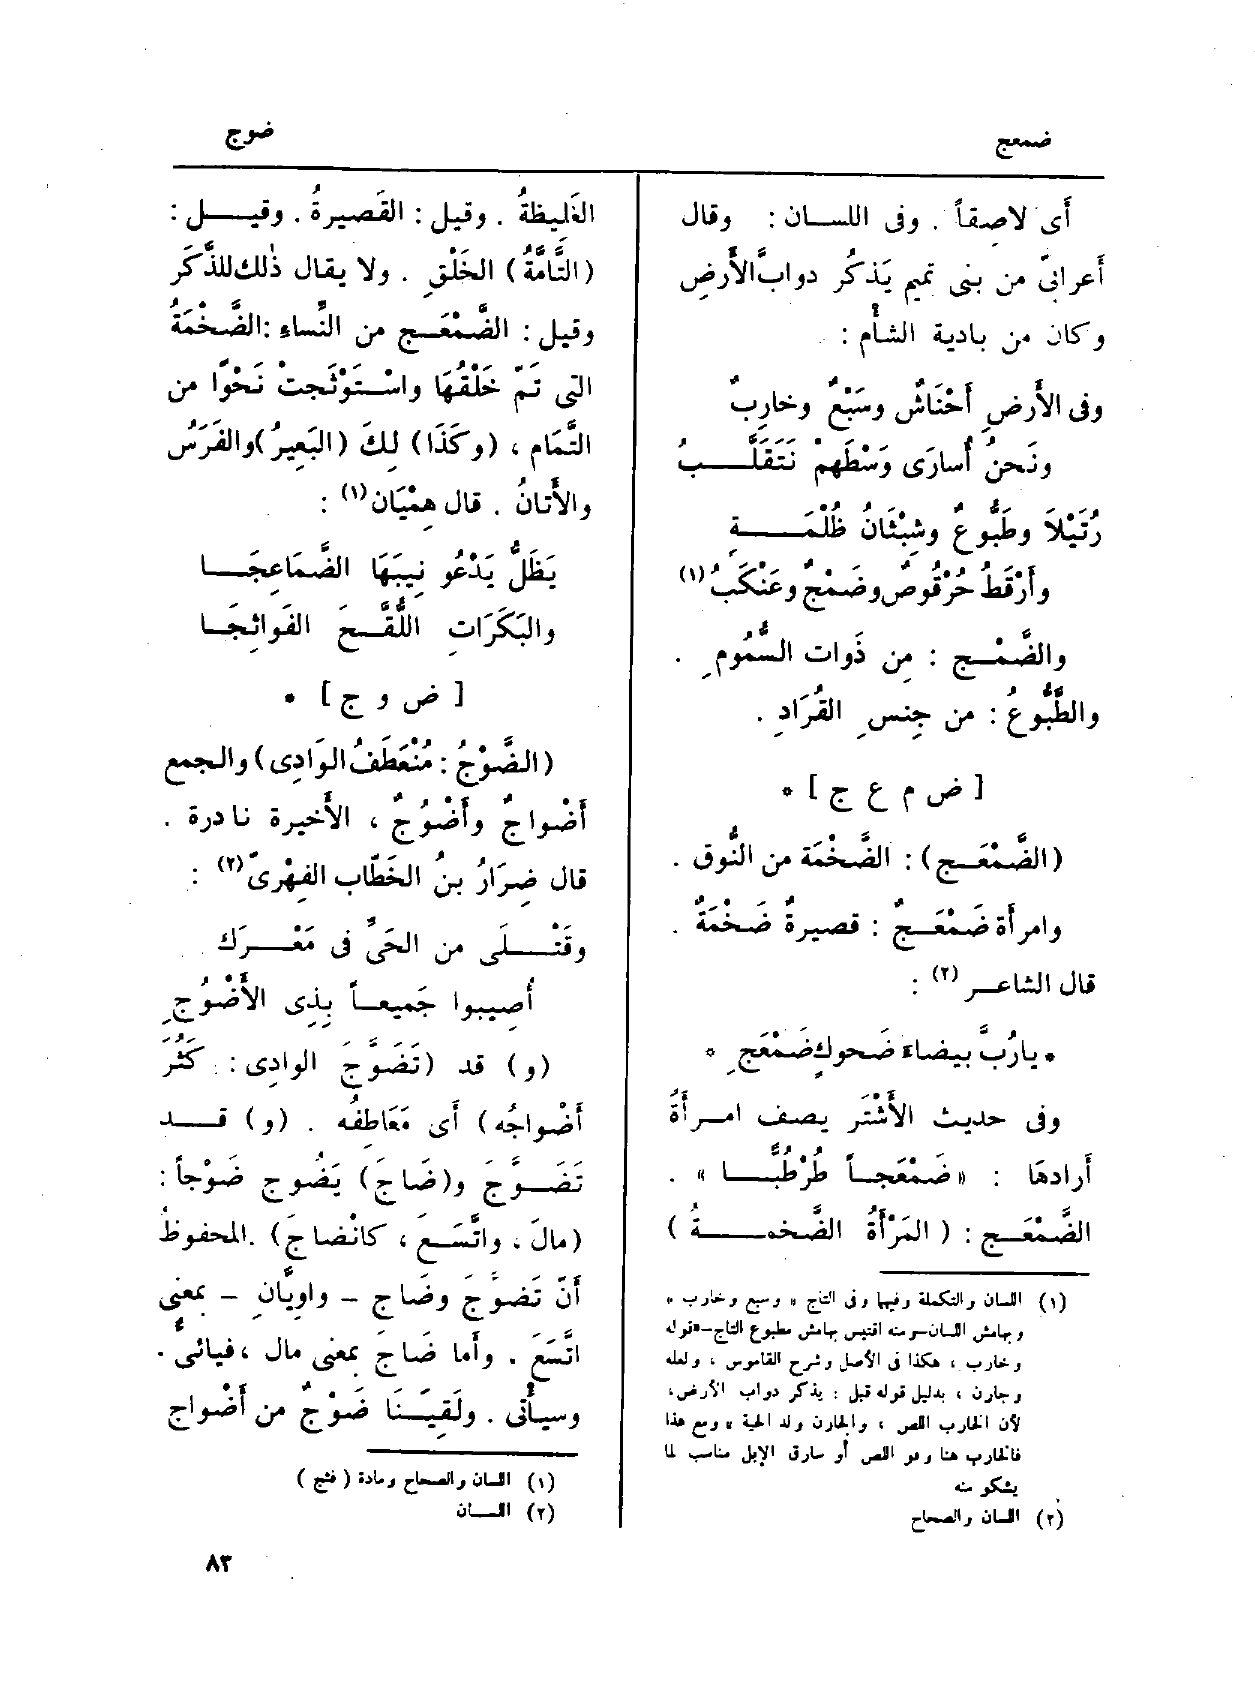 ضمعج
ضوج
أى لاصِقاً . وفى اللسان : وقال
أعرابىّ من بنى تميم يَذكُر دوابَّ الأَرضِ
وكان من بادية الشأْم :
وفى الأَرضِ أَحْنَاشٌ وسَبْعٌ وخارِبٌ
ونَحنُ أُسارَى وَسْطَهمْ نَتَقَلَّبُ
رُتَيْلاَ وطَبُّوعٌ وشِبْثَانُ ظُلْمَةٍ
وأَرْقَطُ حُرْقُوصٌ وضَمْجٌ وعَنْكَبُ (١)
والضَّمْج : مِن ذَوات السُّمُومِ .
والطَّبُّوعُ : من جِنسِ القُرَادِ .
[ ض م ع ج ] *
(الضَّمْعَج) : الضَّخْمَة من النُّوق .
وامرأَة ضَمْعَجٌ : قصيرةٌ ضَخْمَةٌ .
قال الشاعر (٢) :
* يارُبَّ بيضاءَ ضَحوكٍ ضَمْعَجِ *
وفى حديث الأَشْتَر يصف امرأَةً
أَرادهَا : « ضَمْعَجاً طُرْطُبًّا » .
الضَّمْعَج : ( المَرْأَةُ الضَّخمةُ )
(١) اللسان والتكملة وفيها وفى التاج « وسبع وخارب »
وبهامش اللسان-ومنه اقتبس بهامش مطبوع التاج-«قوله
وخارب ، هكذا فى الأصل وشرح القاموس ، ولعله
وجارن ، بدليل قوله قبل : يذكر دواب الأرض،
لأن الخارب اللص ، والجارن ولد الحية » ومع هذا
فالخارب هنا وهو اللص أو سارق الإبل مناسب لما
يشكو منه
(٢) اللسان والصحاح
الغَلِيظةُ . وقيل : القَصيرةُ . وقيل :
(التَّامَّةُ) الخَلْقِ . ولا يقال ذٰلك للذَّكَر
وقيل : الضَّمْعَج من النِّساءِ : الضَّخْمَةُ
التى تَمّ خَلْقُهَا واسْتَوْثَجتْ نَحْوًا من
التَّمَام ، (وكَذَا) لِكَ (البَعِيرُ) والفَرَسُ
والأَتانُ . قال هِمْيَان (١) :
يَظَلُّ يَدْعُو نِيبَهَا الضَّمَاعِجَا
والبَكَرَاتِ اللُّقَّحَ الفَوائِجَا
[ ض و ج ] *
(الضَّوْجُ : مُنْعَطَفُ الوَادِى) والجمع
أَضْواجٌ وأَضْوُجٌ ، الأَخيرة نادرة .
قال ضِرَارُ بنُ الخَطّاب الفِهْرِىّ (٢) :
وقَتْلَى من الحَىِّ فى مَعْرَك
أُصِيبوا جَمِيعاً بِذِى الأَضْوُجِ
(و) قد (تَضَوَّجَ الوادِى : كَثُرَ
أَضْواجُه) أَى مَعَاطِفُه . (و) قد
تَضَوَّجَ و(ضَاجَ) يَضُوج ضَوْجاً :
(مالَ ، واتَّسَعَ ، كانْضاجَ) . المحفوظُ
أَنّ تَضوَّجَ وضَاج – واوِيَّانِ – بمعنى
اتَّسَعَ . وأَما ضَاجَ بمعنى مال ، فيائىٌّ .
وسيأْتى . ولَقِيَنَا ضَوْجٌ من أَضْواج
(١) اللسان والصحاح ومادة ( فثج )
(٢) اللسان
٨٣